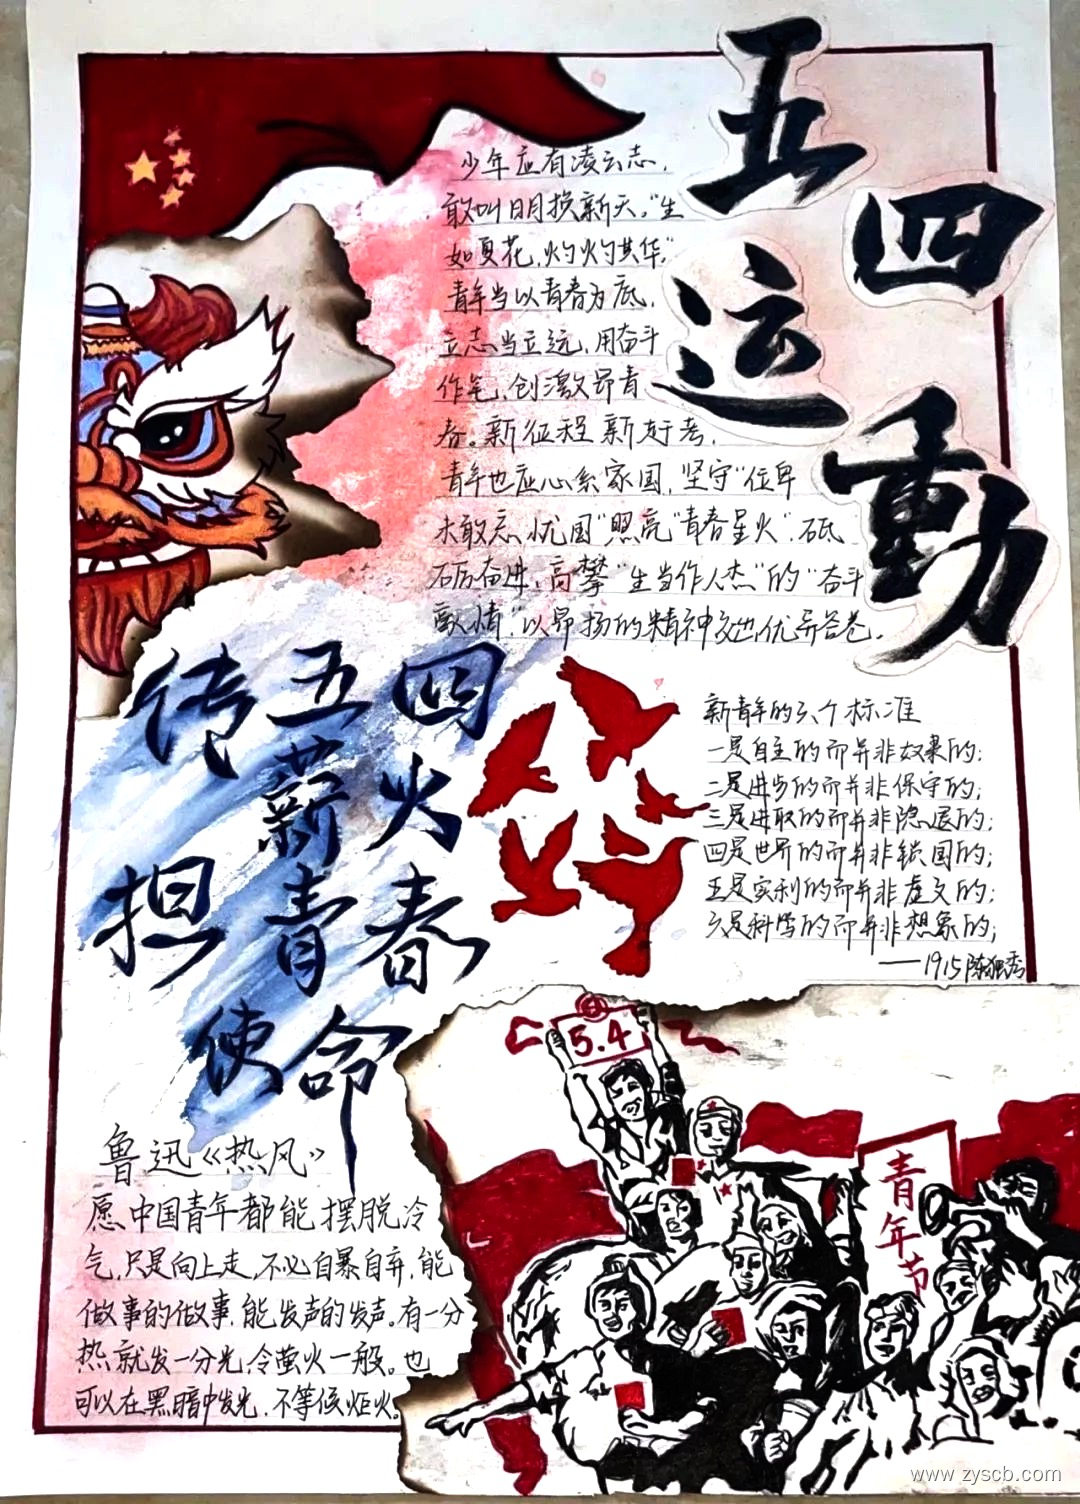 五四运動
少年应有凌云志，
敢叫日月换新天。“生
如夏花，灼灼其华”
青年当以青春为底，
立志当立远，用奋斗
作笔，创激昂青
春。新征程新赶考，
青年也应心系家国，坚守“位卑
未敢忘忧国”照亮“青春星火”。砥
砺奋进，高攀“生当作人杰”的“奋斗
豪情”，以昂扬的精神交出优异答卷。
传五四
薪火
担青春
使命
新青年的六个标准
一是自主的而并非奴隶的；
二是进步的而并非保守的；
三是进取的而并非隐退的；
四是世界的而并非锁国的；
五是实利的而并非虚文的；
六是科学的而并非想象的；
——1915陈独秀
鲁迅《热风》
愿中国青年都能摆脱冷
气，只是向上走，不必自暴自弃，能
做事的做事，能发声的发声。有一分
热就发一分光，令萤火一般。也
可以在黑暗中发光，不等候炬火。
5.4
青年节
www.zyscb.com